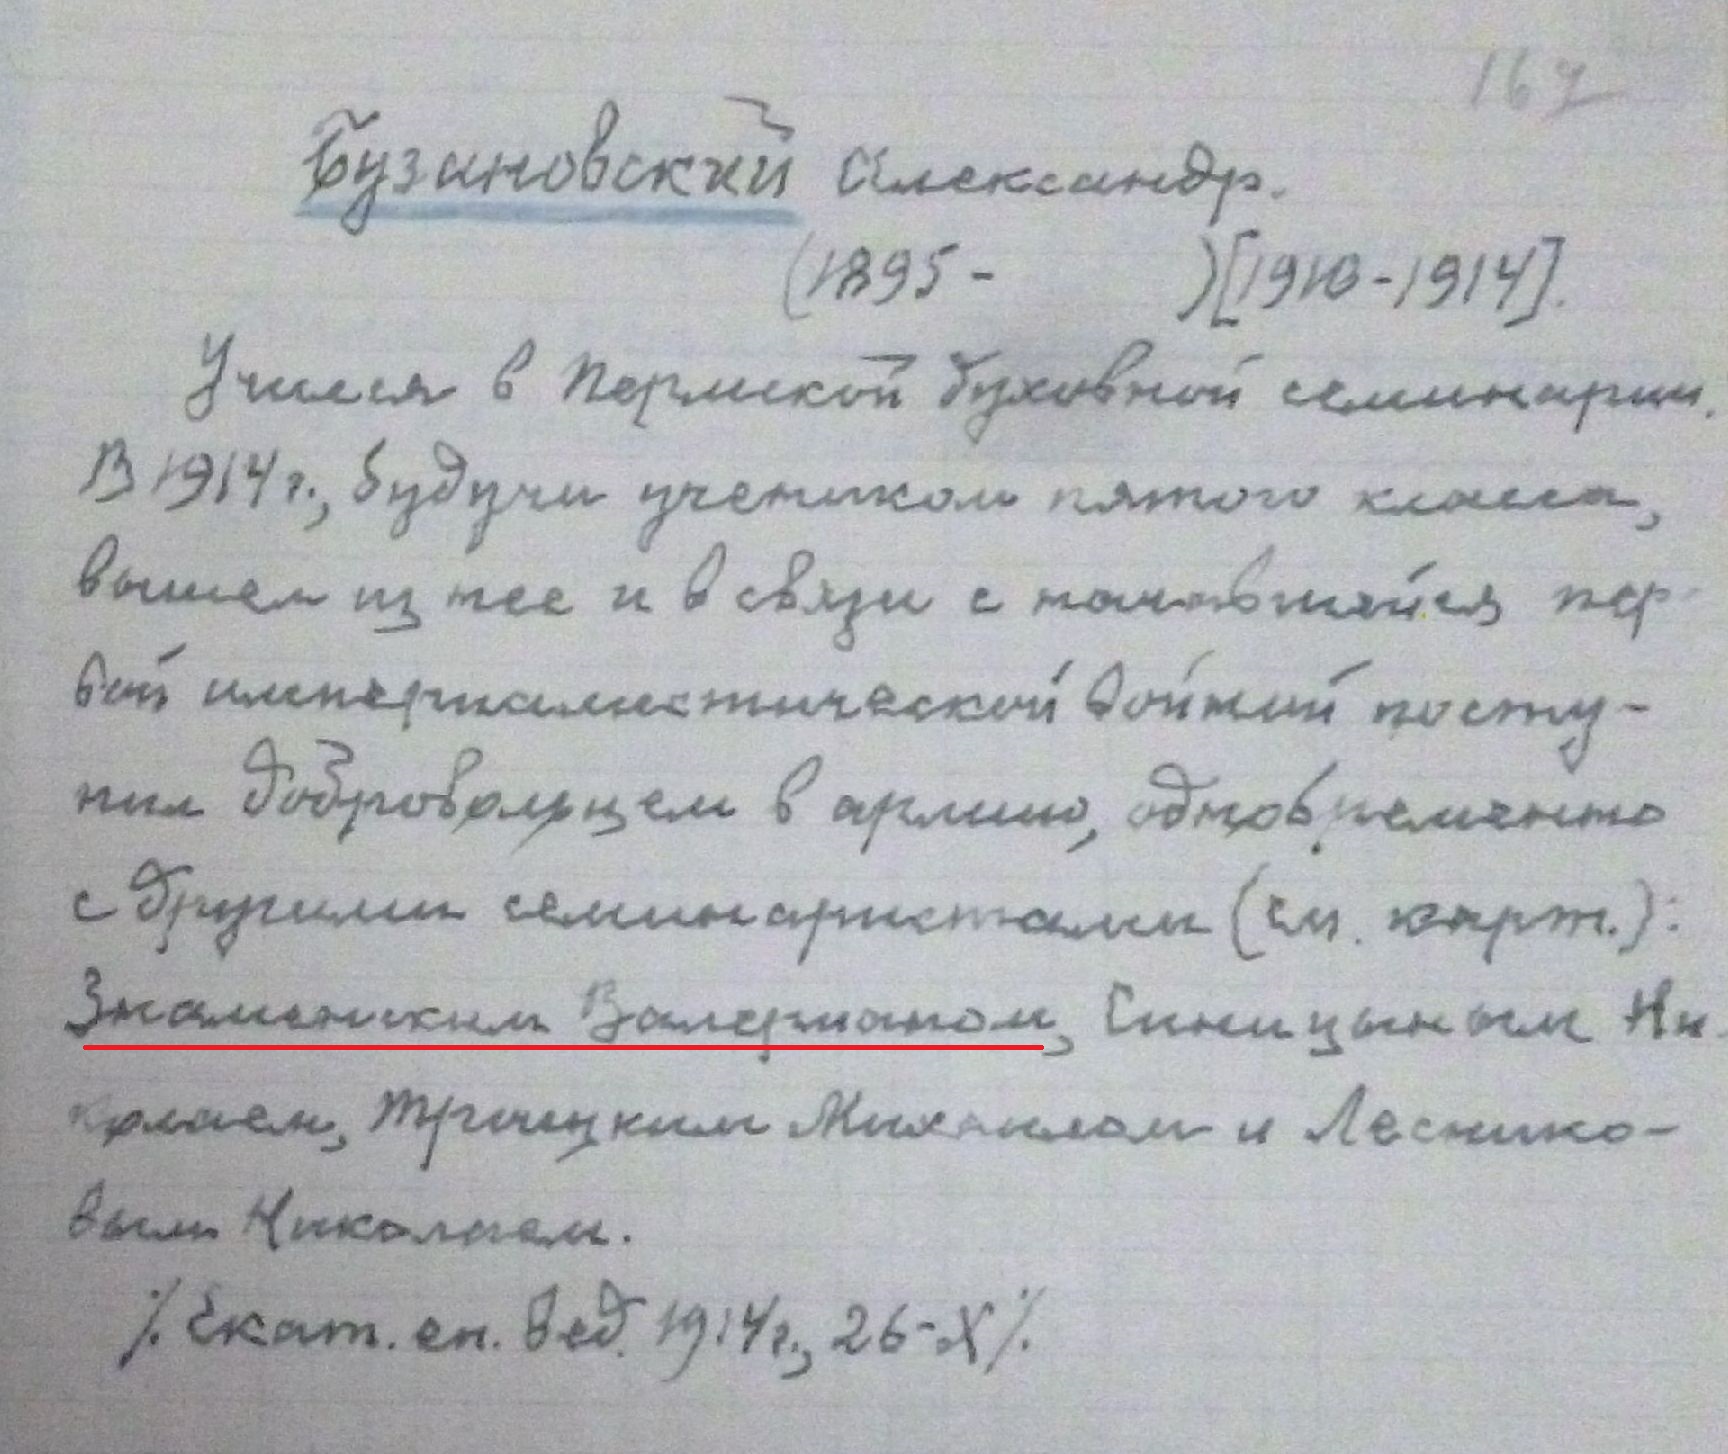 167
Бузановский Александр.
(1895 - )[1910-1914].
Учился в Пермской духовной семинарии.
В 1914 г., будучи учеником пятого класса,
вышел из нее и в связи с начавшейся пер-
вой империалистической войной посту-
пил добровольцем в армию, одновременно
с другими семинаристами (см. карт.):
Знаменским Валерианом, Синицыным Ни-
колаем, Троицким Михаилом и Леснико-
вым Николаем.
/. Екат. еп. вед. 1914 г., 26-X /.